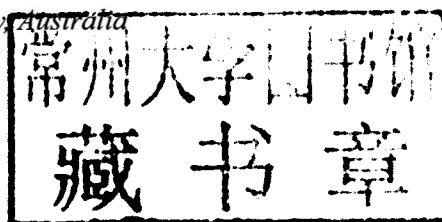 , Australia
常州大学图书馆
藏书章